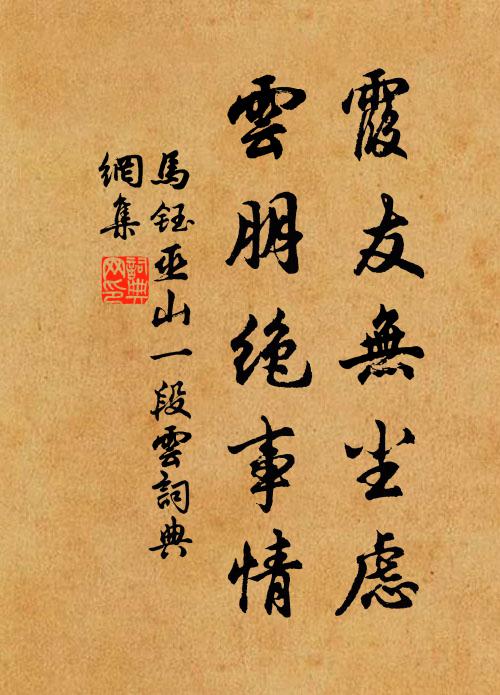 霞友無尘慮
雲朋绝事情
馬鈺巫山一段雲詞典
網集
詞典
网印